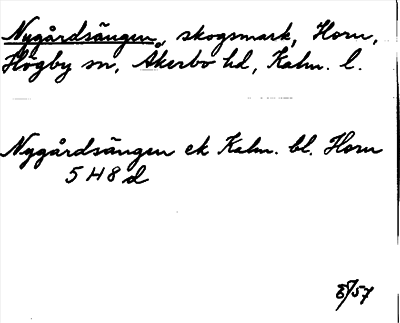 Nygårdsängen, skogsmark, Horn,
Högby sn, Åkerbo hd, Kalm. l.
Nygårdsängen ek Kalm. bl. Horn
5 H 8 d
/57